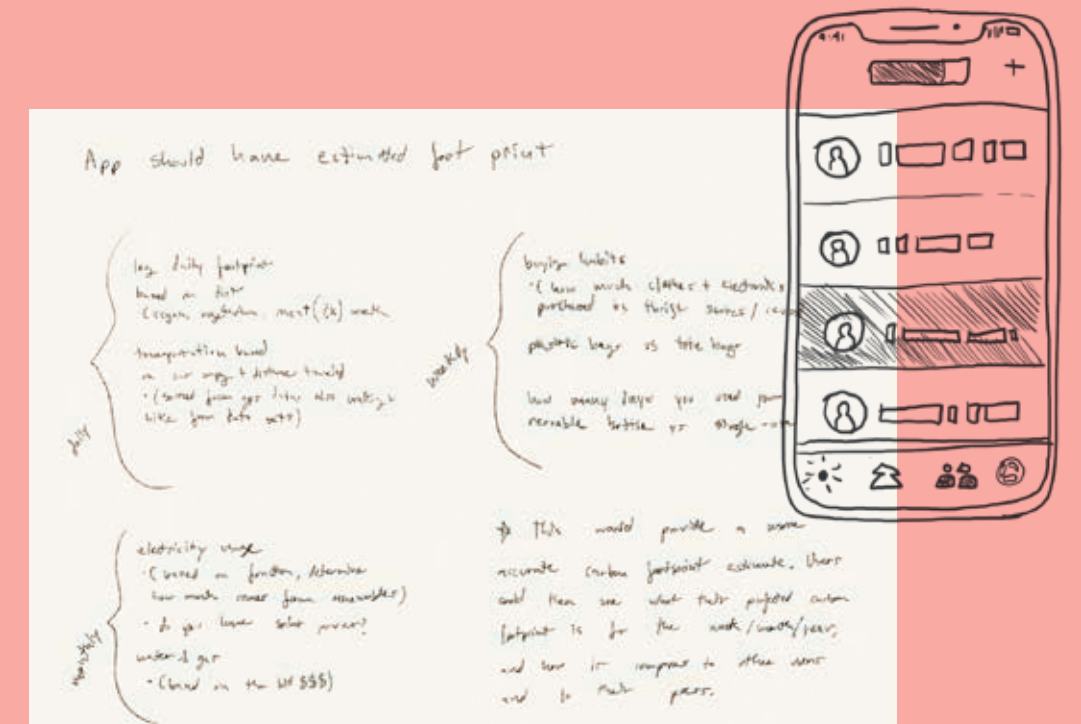 App should have estimated foot print
log daily footprint
based on diet
(vegan, vegetarian, meat
transportation based
on car mpg + distance
bike from data sets)
daily
buying habits
(how much clothes + electronics
purchased vs thrift stores /
plastic bags vs tote bags
how many days you used your
bottle vs single
weekly
electricity usage
(based on location, determine
how much comes from renewables)
do you have solar power?
water & gas
(based on the bill $$$)
monthly
This would provide a more
accurate carbon footprint estimate. Users
could then see what their projected carbon
footprint is for the week/month/year,
and how it compares to other users
and to their peers.
9:41